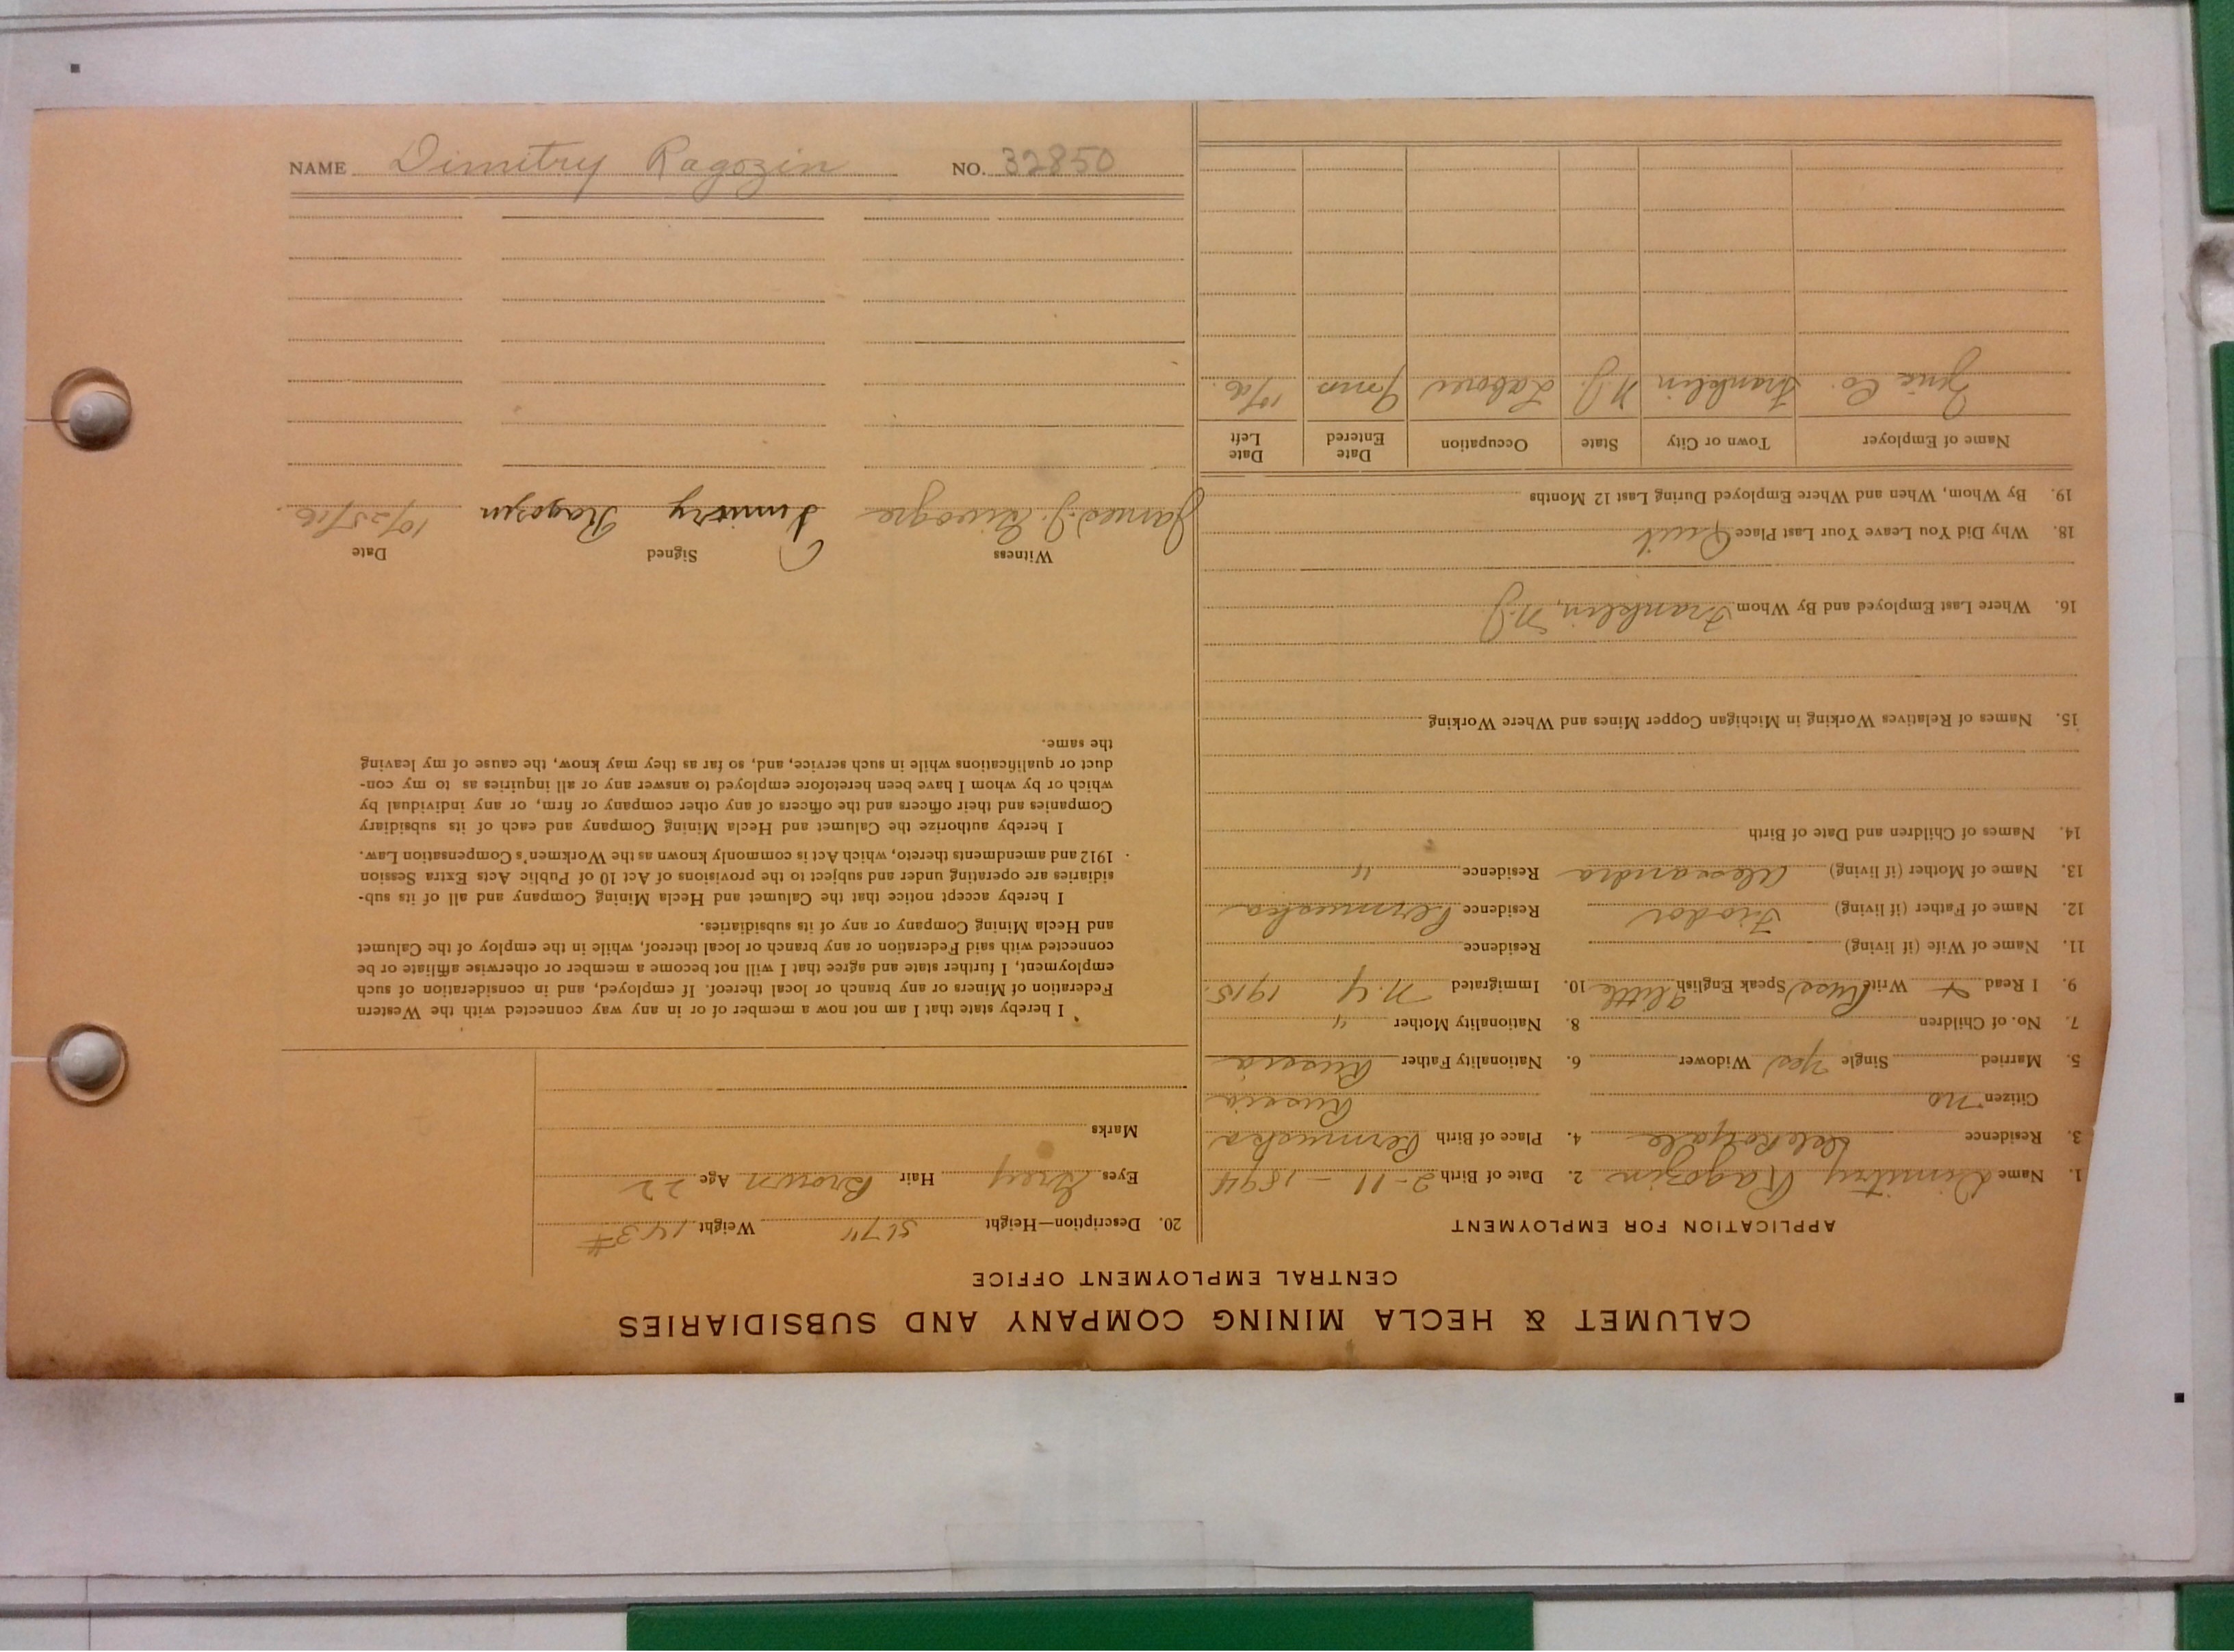 NAME Dimitry Ragozin NO. 32850
CALUMET & HECLA MINING COMPANY AND SUBSIDIARIES
CENTRAL EMPLOYMENT OFFICE
APPLICATION FOR EMPLOYMENT
1. Name Dimitry Ragozin 2. Date of Birth 2-11-1894
3. Residence 4. Place of Birth Permuska
Citizen no Russia
5. Married Single Yes Widower 6. Nationality Father Russia
7. No. of Children 8. Nationality Mother "
9. I Read x Write Russ Speak English A little 10. Immigrated N.Y. 1915.
11. Name of Wife (if living) Residence
12. Name of Father (if living) Fiodor Residence Permuska
13. Name of Mother (if living) Alexandra Residence "
14. Names of Children and Date of Birth
15. Names of Relatives Working in Michigan Copper Mines and Where Working
16. Where Last Employed and By Whom Franklin, N.J.
18. Why Did You Leave Your Last Place Quit
19. By Whom, When and Where Employed During Last 12 Months
Name of Employer Town or City State Occupation Date Entered Date Left
Zinc Co. Franklin N.J. Laborer 9mos 10/16.
20. Description—Height 5'7" Weight 143#
Eyes Grey Hair Brown Age 22
Marks
I hereby state that I am not now a member of or in any way connected with the Western
Federation of Miners or any branch or local thereof. If employed, and in consideration of such
employment, I further state and agree that I will not become a member or otherwise affiliate or be
connected with said Federation or any branch or local thereof, while in the employ of the Calumet
and Hecla Mining Company or any of its subsidiaries.
I hereby accept notice that the Calumet and Hecla Mining Company and all of its sub-
sidiaries are operating under and subject to the provisions of Act 10 of Public Acts Extra Session
1912 and amendments thereto, which Act is commonly known as the Workmen's Compensation Law.
I hereby authorize the Calumet and Hecla Mining Company and each of its subsidiary
Companies and their officers and the officers of any other company or firm, or any individual by
which or by whom I have been heretofore employed to answer any or all inquiries as to my con-
duct or qualifications while in such service, and, so far as they may know, the cause of my leaving
the same.
Witness Signed Date
James J. Dimitry Ragozin 10/25/16.